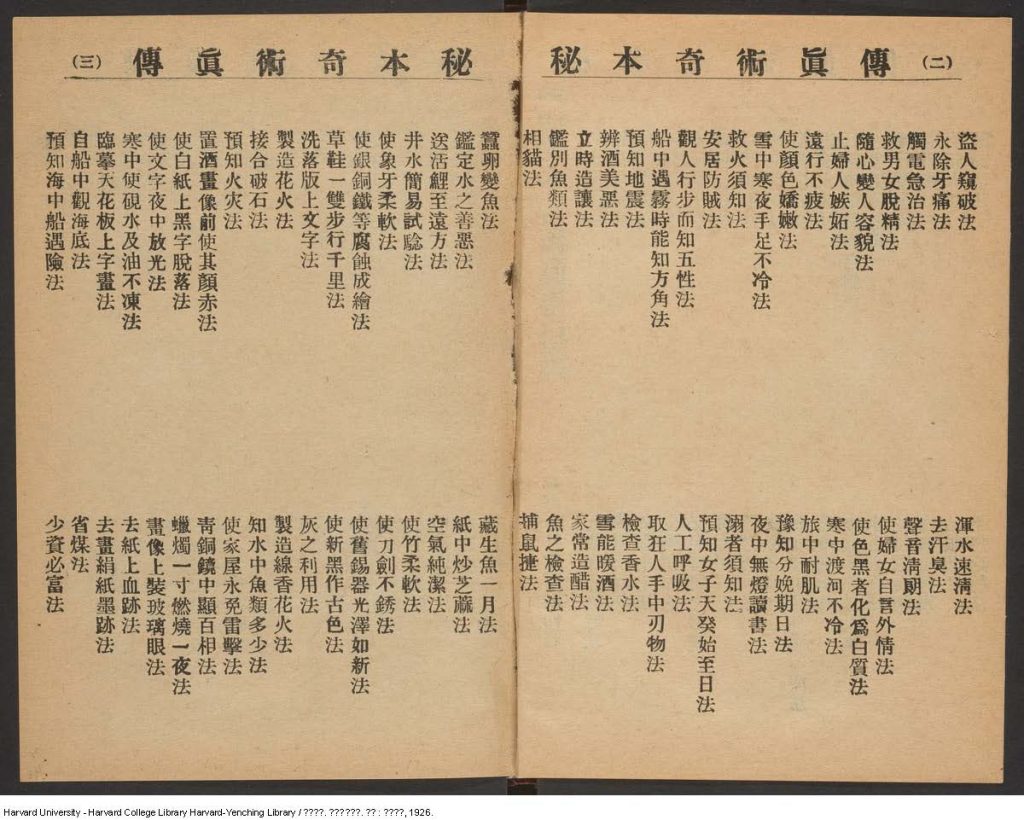 (二) 傳眞術奇本秘
盜人窺破法
永除牙痛法
觸電急治法
救男女脫精法
隨心變人容貌法
止婦人嫉妬法
遠行不疲法
使顏色嬌嫩法
雪中寒夜手足不冷法
救火須知法
安居防賊法
觀人行步而知五性法
船中遇霧時能知方角法
預知地震法
辨酒美惡法
立時造讓法
鑑別魚類法
相貓法
渾水速淸法
去汗臭法
聲音淸朗法
使婦女自言外情法
使色黑者化爲白質法
寒中渡河不冷法
旅中耐肌法
豫知分娩期日法
夜中無燈讀書法
溺者須知法
預知女子天癸始至日法
人工呼吸法
取狂人手中刃物法
檢查香水法
雪能暖酒法
家常造醋法
魚之檢查法
捕鼠捷法
秘本奇術眞傳 (三)
蠶卵變魚法
鑑定水之善惡法
送活鯉至遠方法
井水簡易試騐法
使象牙柔軟法
使銀銅鐵等腐蝕成繪法
草鞋一雙步行千里法
洗落版上文字法
製造花火法
接合破石法
預知火灾法
置酒畫像前使其顏赤法
使白紙上黑字脫落法
使文字夜中放光法
寒中使硯水及油不凍法
臨摹天花板上字畫法
自船中觀海底法
預知海中船遇險法
藏生魚一月法
紙中炒芝蔴法
空氣純潔法
使竹柔軟法
使刀劍不銹法
使舊錫器光澤如新法
使新黑作古色法
灰之利用法
製造線香花火法
知水中魚類多少法
使家屋永免雷擊法
靑銅鏡中顯百相法
蠟燭一寸燃燒一夜法
畫像上裝玻璃眼法
去紙上血跡法
去畫絹紙墨跡法
省煤法
少資必富法
Harvard University - Harvard College Library Harvard-Yenching Library / ????. ??????. ?? : ????, 1926.